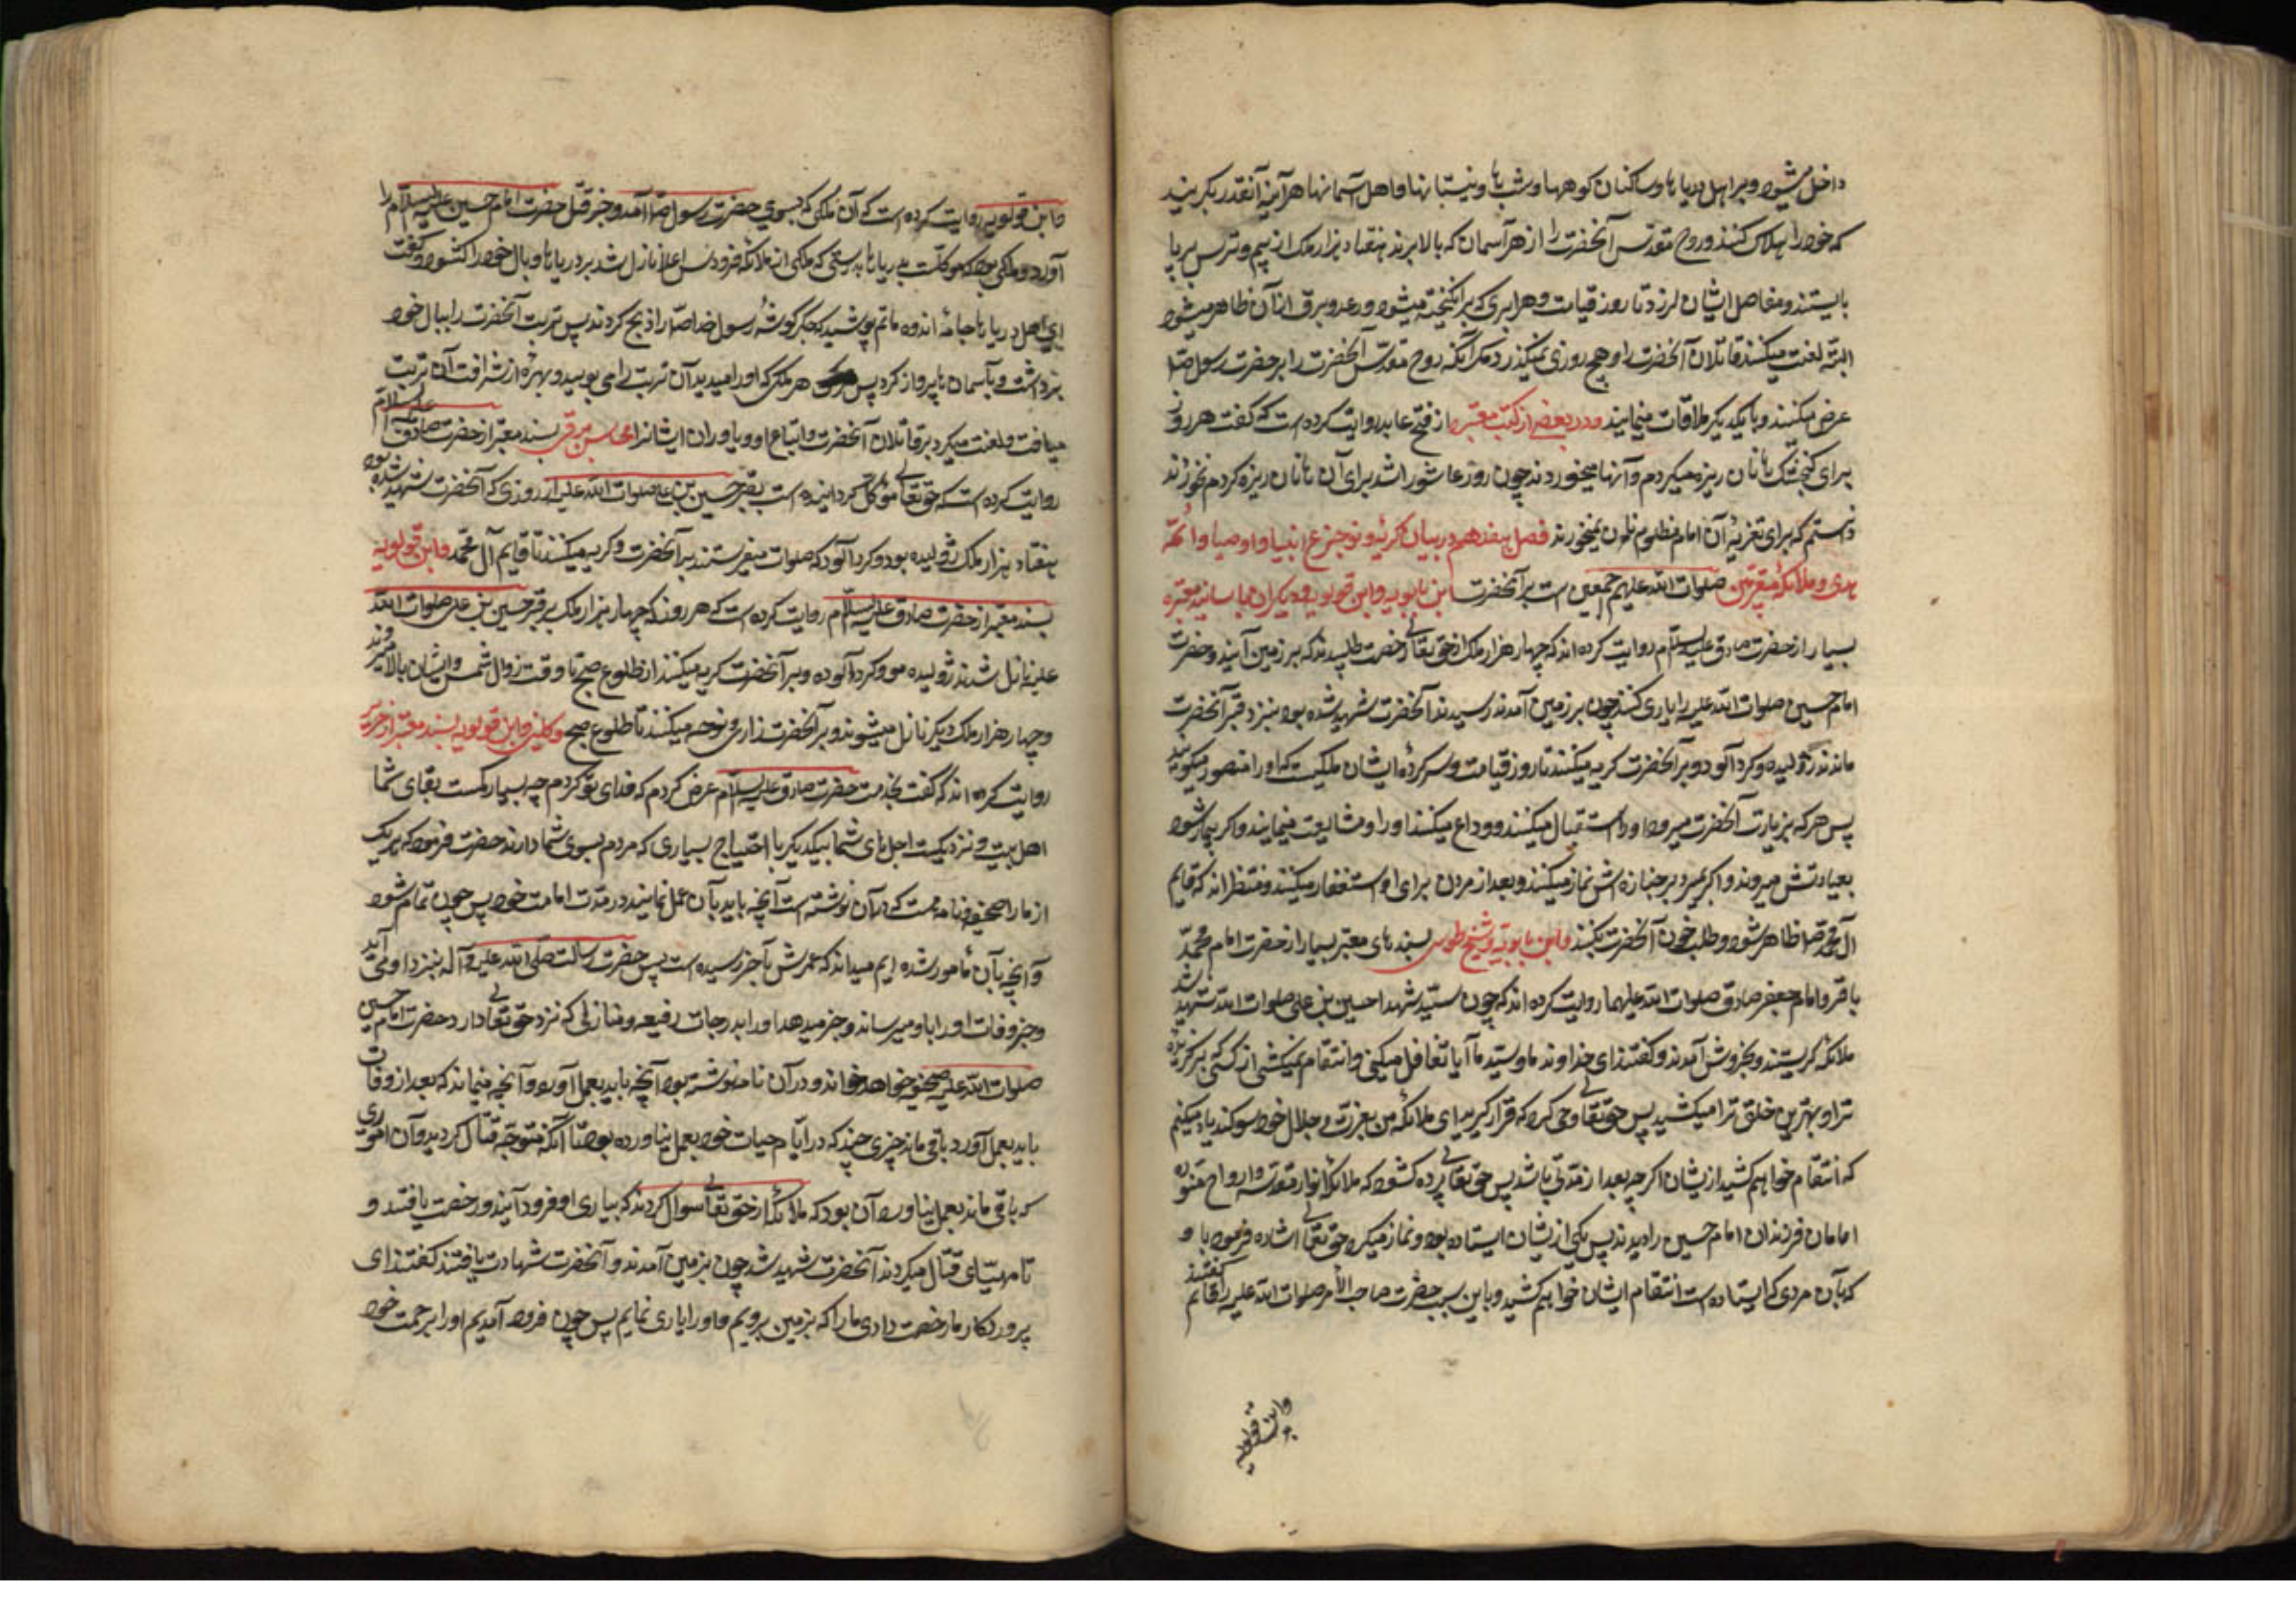 داخل میشود و بر اهل دریاها و ساکنان کوهها و نیستانها و اهل آسمانها هرآینه آنقدر بگریند
که خود را هلاک کنند و روح مقدس آنحضرت را از هر آسمان که بالا برند هفتاد هزار ملک از بیم و ترس برپا
بایستند و مفاصل ایشان لرزد تا روز قیامت و هر ابری که برانگیخته میشود و رعد و برق از آن ظاهر میشود
البته لعنت میکنند قاتلان آنحضرت را و هیچ روزی نمیگذرد مگر آنکه روح مقدس آنحضرت را بر حضرت رسول ص
عرض میکنند و با یکدیگر ملاقات مینمایند و در بعضی از کتب معتبره از فتح عابد روایت کرده است که گفت هر روز
برای گنجشک ها نان ریزه میکردم و آنها میخوردند چون روز عاشورا شد برای آن ها نان ریزه کردم نخوردند
دانستم که برای تعزیه آن امام مظلوم نان نمیخورند فصل هفدهم در بیان گریه و نوحه و جزع انبیا و اوصیا و ائمه
هدی و ملائکه مقربین صلوات الله علیهم اجمعین است بر آنحضرت ابن بابویه و ابن قولویه و دیگران همه باسانید معتبره
بسیار از حضرت صادق علیه السلام روایت کرده اند که چهار هزار ملک از حقتعالی رخصت طلبیدند که بر زمین آیند و حضرت
امام حسین صلوات الله علیه را یاری کنند چون بر زمین آمدند رسیدند آنحضرت شهید شده بود نزد قبر آنحضرت
ماندند ژولیده و گرد آلود و بر آنحضرت گریه میکنند تا روز قیامت و سرکرده ایشان ملکیست که او را منصور میگویند
پس هر که بزیارت آنحضرت میرود او را استقبال میکنند و وداع میکنند او را و مشایعت مینمایند و اگر بیمار شود
بعیادتش میروند و اگر بمیرد بر جنازه اش نماز میکنند و بعد از مردن برای او استغفار میکنند و منتظر اند که قایم
آل محمد ص ظاهر شود و طلب خون آنحضرت بکنند و ابن بابویه و شیخ طوسی بسندهای معتبر بسیار از حضرت امام محمد
باقر و امام جعفر صادق صلوات الله علیهما روایت کرده اند که چون سید شهدا حسین بن علی صلوات الله شهید شد
ملائکه گریستند و بخروش آمدند و گفتند ای خداوند ما و سید ما آیا تغافل میکنی و انتقام نمیکشی از کسی که برگزیده
ترا و بهترین خلق ترا میکشد پس حقتعالی وحی کرد که قرار گیرید ای ملائکه من بعزت و جلال خود سوگند یاد میکنم
که انتقام خواهم کشید از ایشان اگر چه بعد از مدتی باشد پس حقتعالی پرده گشود که ملائکه انوار مقدسه و ارواح منوره
امامان فرزندان امام حسین را دیدند پس یکی از ایشان ایستاده بود و نماز میکرد حقتعالی اشاره فرمود باو و گفتند
که بآن مردی که ایستاده است انتقام ایشان خواهم کشید و باین سبب حضرت صاحب الامر صلوات الله علیه را قائم
و ابن قولویه
و ابن قولویه روایت کرده است که آن ملکی که بسوی حضرت رسول ص آمد و خبر قتل حضرت امام حسین علیه السلام را
آورد و ملکی بود که موکلست بدریاها بدرستی که ملکی از ملائکه فردوس اعلا نازل شد بر دریاها و بال خود را گشود و گفت
ای اهل دریاها جامه اندوه و ماتم پوشید که جگرگوشه رسول خدا ص را ذبح کردند پس تربت آنحضرت را ببال خود
برداشت و بآسمان ها پرواز کرد پس هر ملکی که او را میدید آن تربت را می بویید و بهره از شرافت آن تربت
مییافت و لعنت میکرد بر قاتلان آنحضرت و اتباع او و یاوران ایشانرا محاسن برقی بسند معتبر از حضرت صادق علیه السلام
روایت کرده است که حقتعالی موکل گردانیده است بقبر حسین بن علی صلوات الله علیه از روزی که آنحضرت شهید شده بود
هفتاد هزار ملک ژولیده بود و گرد آلود که صلوات میفرستند بر آنحضرت و گریه میکنند تا قایم آل محمد و ابن قولویه
بسند معتبر از حضرت صادق علیه السلام روایت کرده است که هر روز که چهار هزار ملک بر قبر حسین بن علی صلوات الله
علیه نازل شدند ژولیده مو و گرد آلوده و بر آنحضرت گریه میکنند از طلوع صبح تا وقت زوال شمس و ایشان بالا میروند
و چهار هزار ملک دیگر نازل میشوند و بر آنحضرت زاری و نوحه میکنند تا طلوع صبح و کلینی و ابن قولویه بسند معتبر از حریز
روایت کرده اند که گفت بخدمت حضرت صادق علیه السلام عرض کردم که فدای تو گردم چه بسیار کمست بقای شما
اهل بیت و نزدیکست اجل های شما بیکدیگر با احتیاج بسیاری که مردم بسوی شما دارند حضرت فرمود که هر یک
از ما را صحیفه و نامه هست که در آن نوشته است آنچه باید بآن عمل نمایند در مدت امامت خود پس چون تمام شود
و آنچه بآن مامور شده ایم میداند که عمرش بآخر رسیده است پس حضرت رسالت صلی الله علیه و آله بنزد او می آید
و خبر وفات او را باو میرساند و خبر میدهد او را بدرجات رفیعه و منازلی که نزد حقتعالی دارد حضرت امام حسین
صلوات الله علیه صحیفه خواهد خواند و در آن نامه نوشته بود آنچه باید بعمل آورد و آنچه میماند که بعد از وفات
باید بعمل آورد باقی ماند چیزی چند که در ایام حیات خود بعمل نیاورده بود تا آنکه متوجه قتال گردید و آن اموری
که باقی ماند بعمل نیاورد آن بود که ملائکه از حقتعالی سوال کردند که بیاری او فرود آیند و رخصت یافتند و
تا مهیای قتال میگردند آنحضرت شهید شد چون بزمین آمدند و آنحضرت شهادت یافتند گفتند ای
پروردگار ما رخصت دادی ما را که بزمین برویم و او را یاری نمایم پس چون فرود آمدیم او را برحمت خود